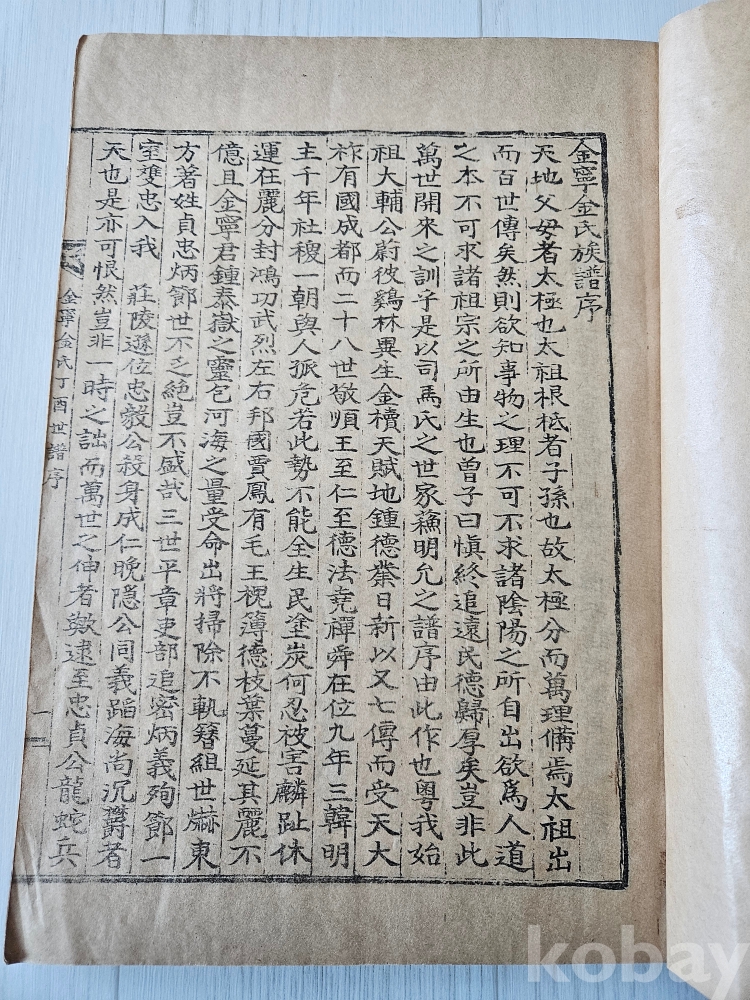 金寧金氏族譜序
天地父母者太極也太祖根柢者子孫也故太極分而萬理備焉太祖出
而百世傳矣然則欲知事物之理不可不求諸陰陽之所自出欲爲人道
之本不可求諸祖宗之所由生也曾子曰愼終追遠民德歸厚矣豈非此
萬世開來之訓乎是以司馬氏之世家蘓明允之譜序由此作也粤我始
祖大輔公蔚彼鷄林異生金櫝天賦地鍾德業日新以又七傳而受天大
祚有國成都而二十八世敬順王至仁至德法堯禪舜在位九年三韓明
主千年社稷一朝與人孤危若此勢不能全生民塗炭何忍被害麟趾休
運在麗分封鴻功武烈左右邦國賈鳳有毛王槐簿德枝葉蔓延其麗不
億且金寧君鍾泰嶽之靈包河海之量受命出將掃除不軌簪組世爀東
方著姓貞忠炳節世不乏絶豈不盛哉三世平章吏部追密炳義殉節一
室雙忠入我 莊陵遜位忠毅公殺身成仁晩隱公同義蹈海尚沉欝者
天也是亦可恨然豈非一時之詘而萬世之伸者歟逮至忠貞公龍蛇兵
金寧金氏丁酉世譜序
一
kobay